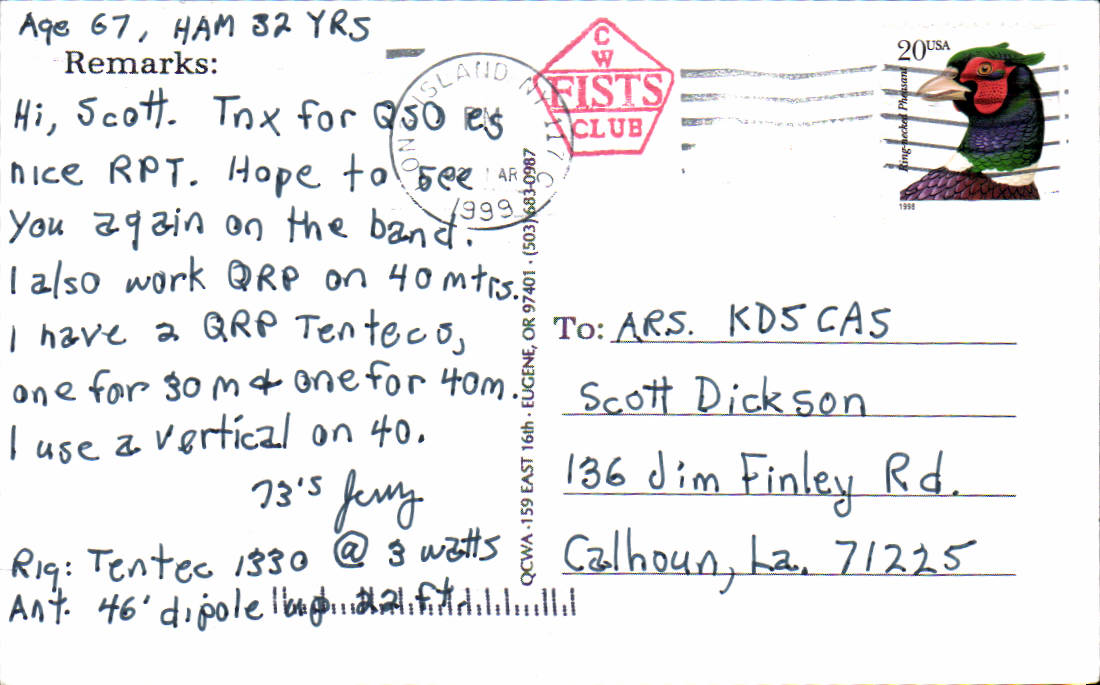 Age 67, HAM 32 YRS
Remarks:
Hi, Scott. Tnx for QSO es
nice RPT. Hope to see
you again on the band.
I also work QRP on 40 mtrs.
I have a QRP Tentecs,
one for 30m & one for 40m.
I use a vertical on 40.
73's Jerry
Rig: Tentec 1330 @ 3 watts
Ant. 46' dipole up 22 ft.
QCWA - 159 EAST 16th - EUGENE, OR 97401 - (503) 683-0987
ISLAND NY 117
PM
1999
C
W
FISTS
CLUB
20USA
Ring-necked Pheasant
1998
To: ARS. KD5CAS
Scott Dickson
136 Jim Finley Rd.
Calhoun, La. 71225